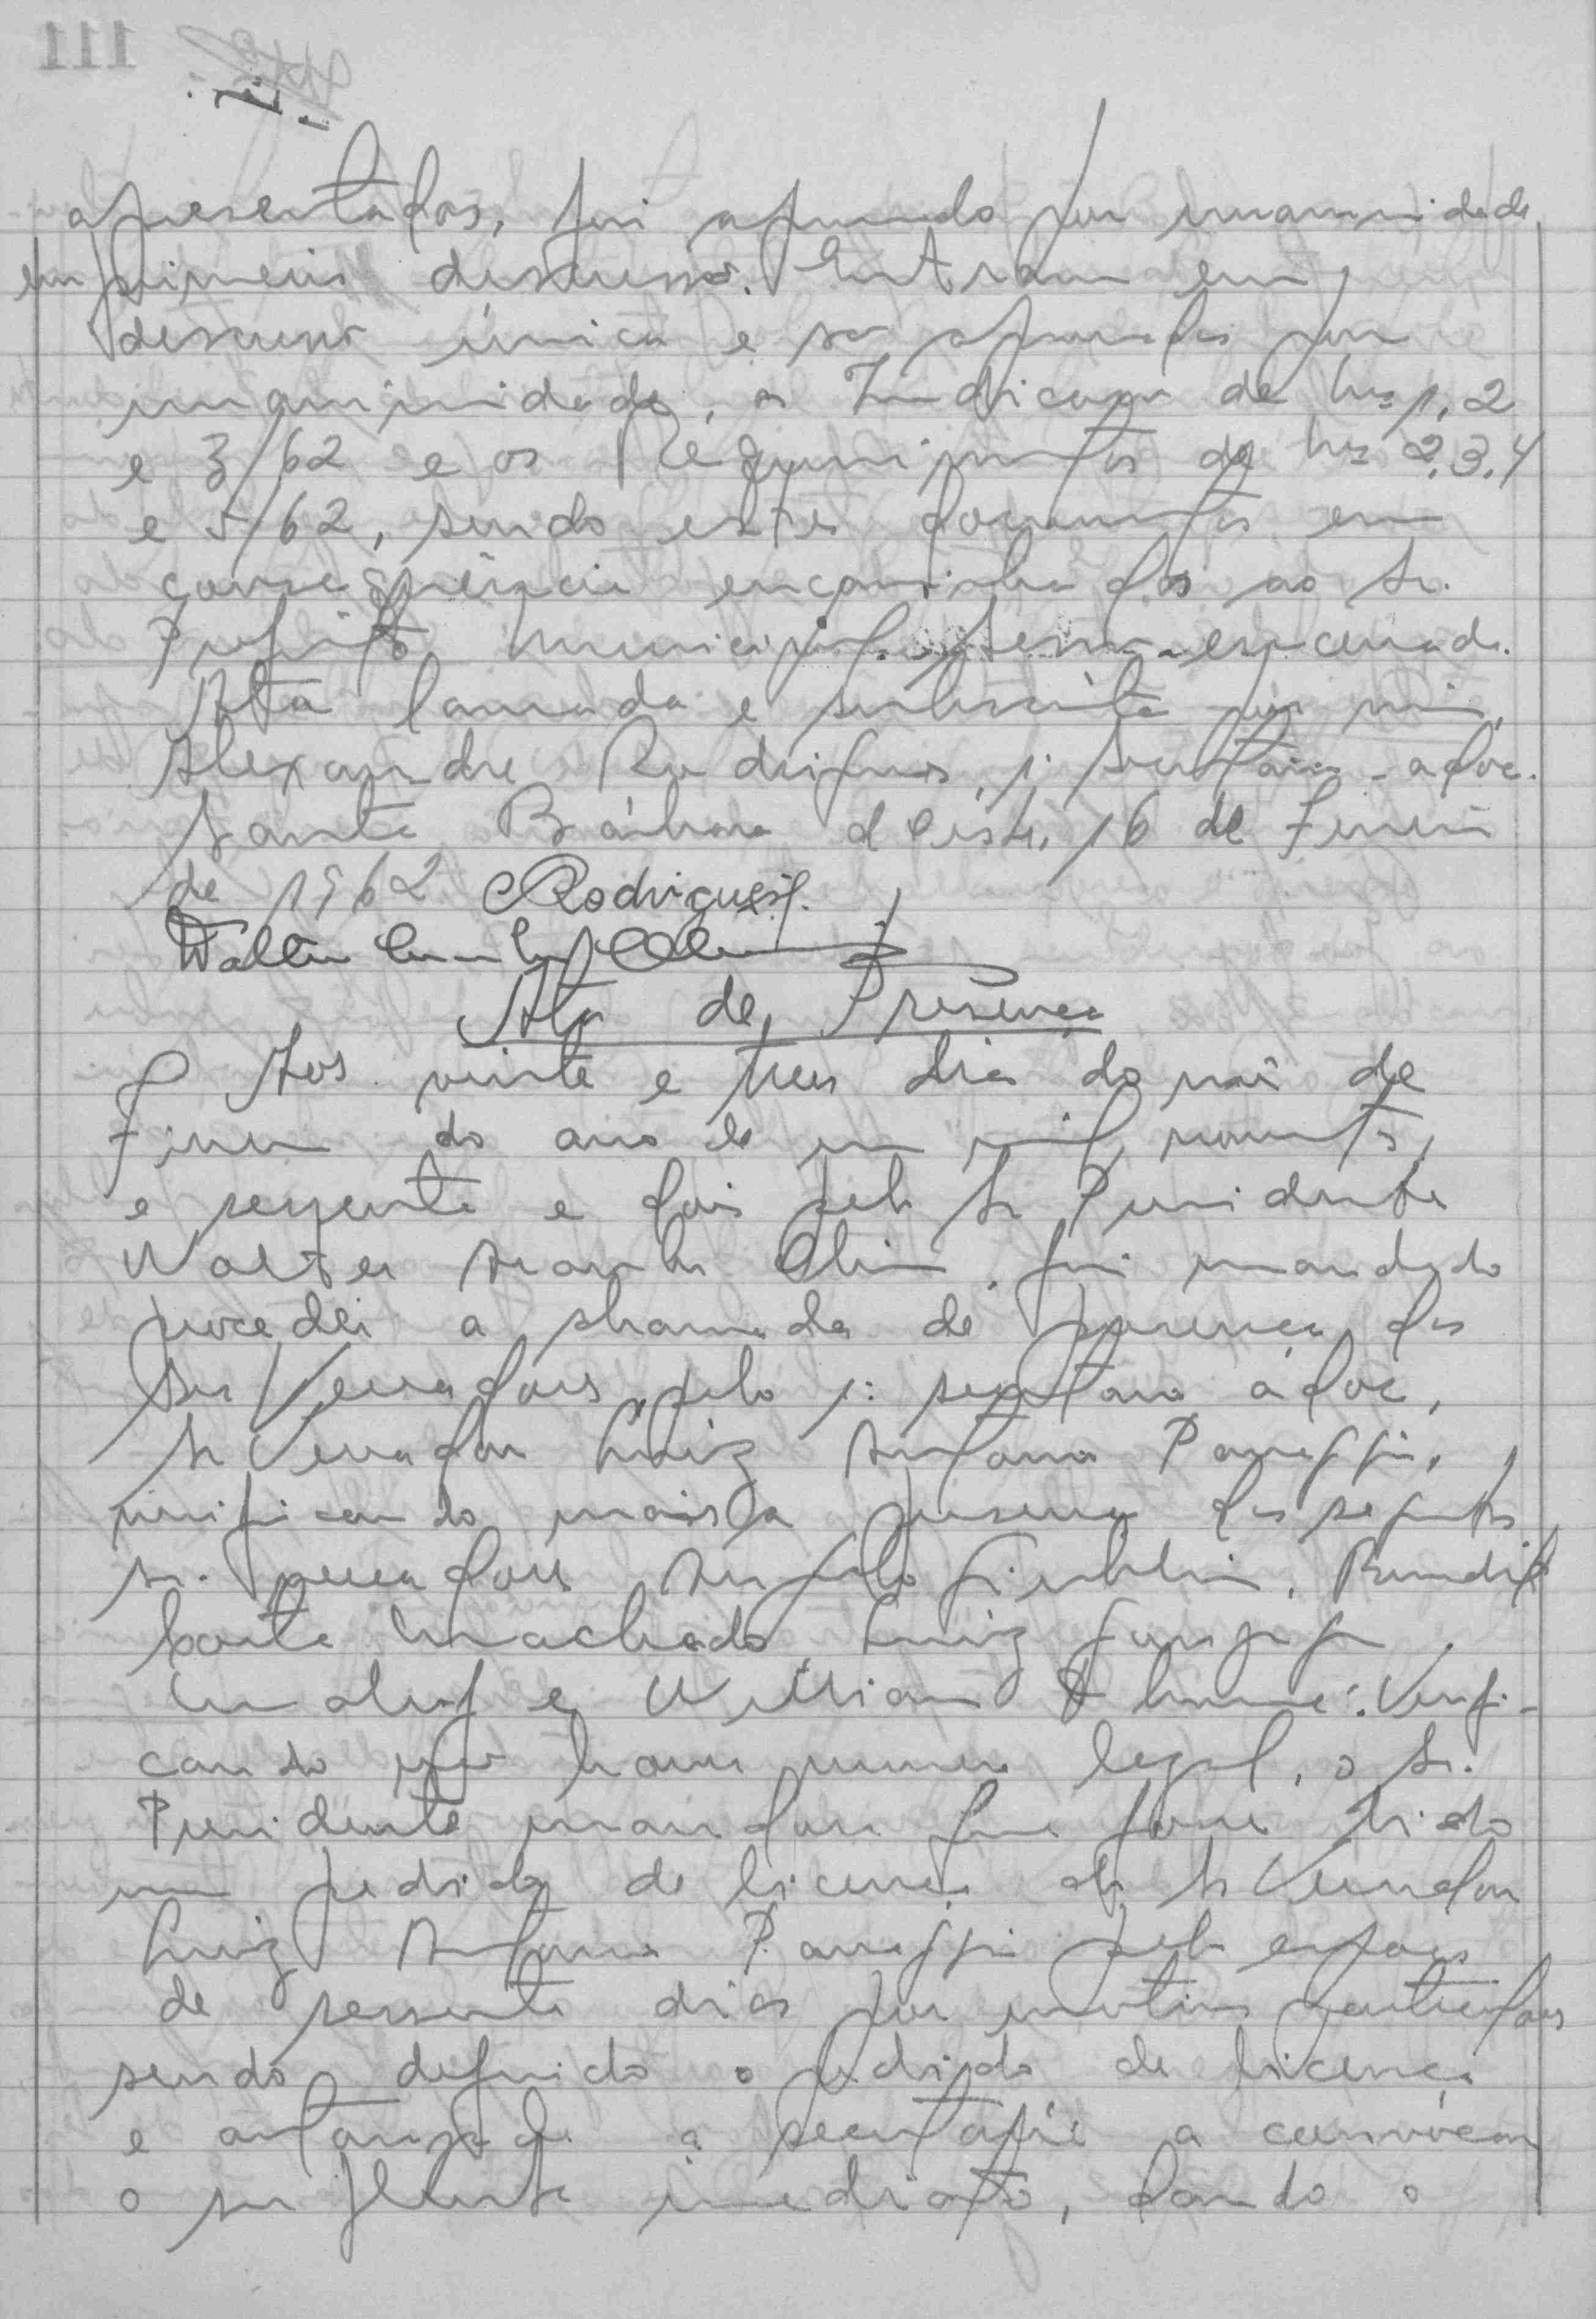 apresentados, foi aprovado por unanimidade
em primeira discussão. Entram em
discussão única e são aprovadas por
unanimidade, as Indicações de nos 1, 2
e 3/62 e os Requerimentos de nos 2, 3, 4
e 5/62, sendo estes documentos em
consequência encaminhados ao Sr.
Prefeito Municipal. Sessão encerrada.
Ata lavrada e subscrita por mim,
Alexandre Rodrigues, 1º secretário adoc.
Santa Bárbara d'Oeste, 16 de Fevereiro
de 1962 Rodrigues
Walter
Ata de Presença
Aos vinte e tres dias do mês de
Fevereiro do ano de um mil, novecentos
e sessenta e dois pelo Sr Presidente
Walter fui mandado
proceder a chamada de presença dos
Srs Vereadores, pelo 1º secretário adoc,
Sr Vereador Luiz Antonio Panaggio,
verificando mais a presença dos seguintes
Sr. vereadores Angelo Giubbina, Benedito
Costa Machado, Luiz
Maluf e William
Verificando não haver numero legal, o Sr.
Presidente mandou que fosse lido
um pedido de licença do Sr Vereador
Luiz Antonio Panaggio pelo espaço
de sessenta dias por motivos particulares
sendo deferido o pedido de licença
e autorizada a secretaria a convocar
o suplente imediato, dando o